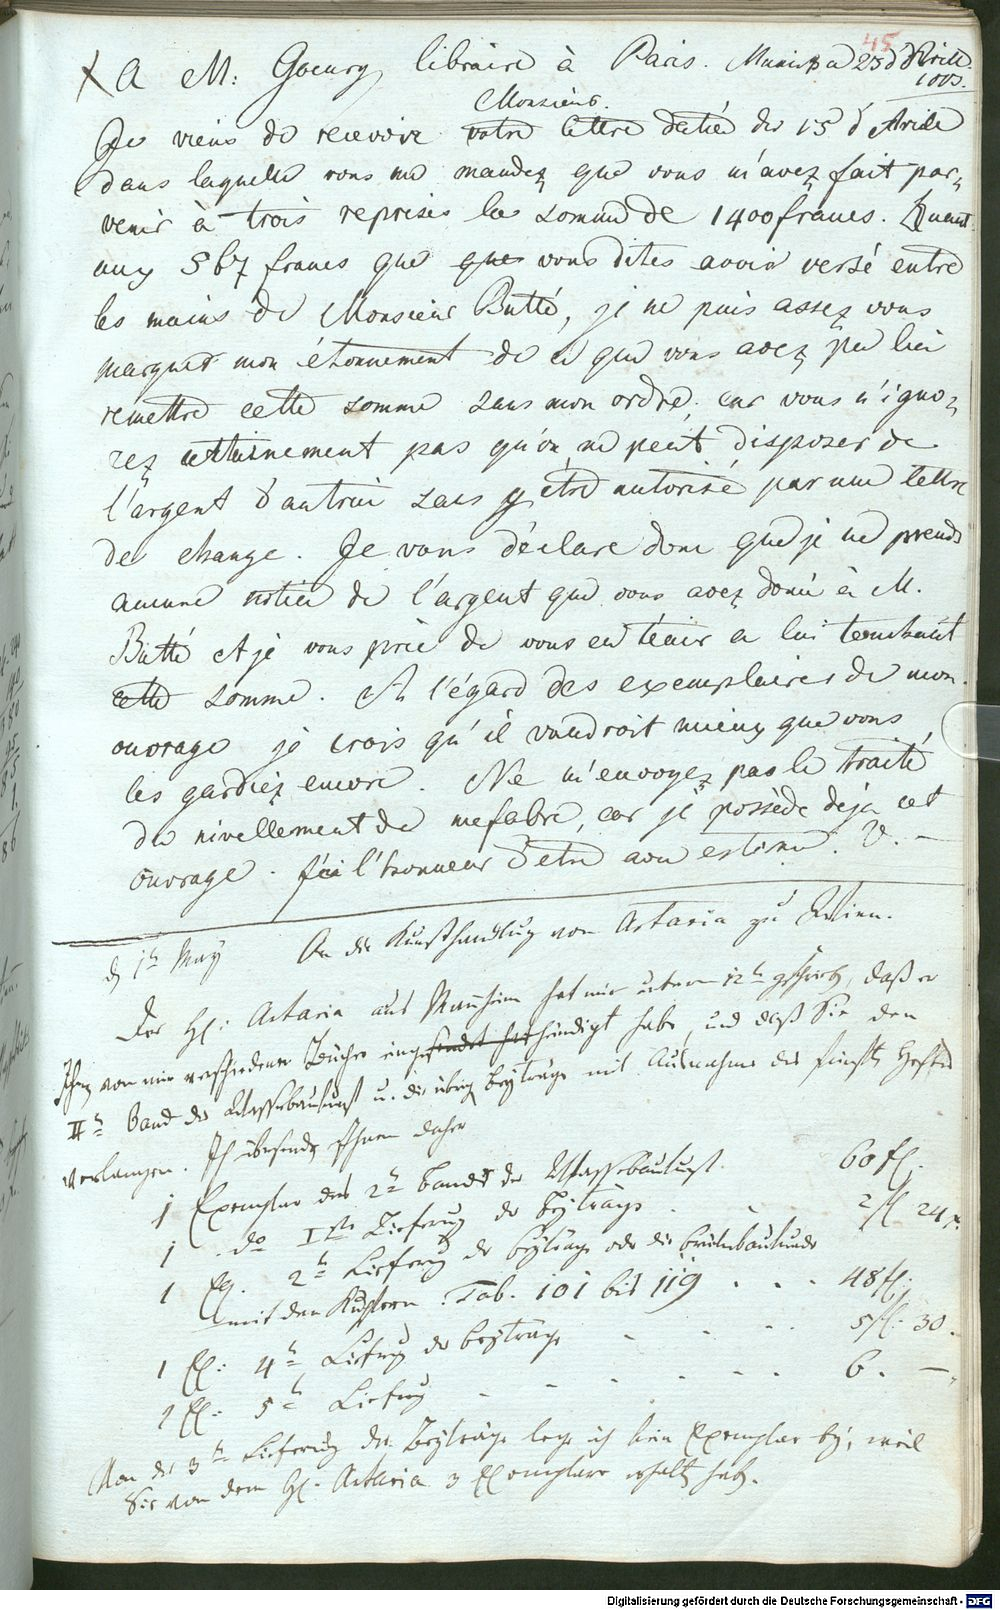 45
A M: Goeury libraire à Paris. Munic a 23 d'Avril
Monsieur.
Je viens de recevoir votre lettre datée du 15 d'Avrile
dans laquelle vous me mandez que vous m'avez fait par-
venir à trois reprises la somme de 1400 francs. Quant
aux 567 francs que ques vous dites avoir versé entre
les mains de Monsieur Butté, je ne puis assez vous
marquer mon étonnement de ce que vous avez pu lui
remettre cette somme sans mon ordre; car vous n'igno-
rez certainement pas qu'on ne peut disposer de
l'argent d'autrui sans y être autorisé par une lettre
de change. Je vous déclare donc que je ne prends
aucune notice de l'argent que vous avez donné à M.
Butté et je vous prie de vous en tenir a lui touchant
cette somme. A l'égard des exemplaires de mon
ouvrage je crois qu'il vaudroit mieux que vous
les gardiez encore. Ne m'envoyez pas le traité
du nivellement de mefabre, car je possède déja cet
ouvrage. J'ai l'honneur d'etre avec estime. V. —
d 1t May An die Kunsthandlung von Artaria zu Wien.
Der H: Artaria aus Mannheim hat mir unterm 12t geschrieben, daß er
Ihnen von mir verschiedene Bücher eingehändigt habe, und daß Sie den
IIt Band der Wasserbaukunst u. die übrigen Beyträge mit Ausnahme des fünften Heftes
verlangen. Ich übersende Ihnen daher
1 Exemplar des 2t Bandes der Wasserbaukunst. 60 fl.
1 do Iste Lieferung der Beyträge . . 2 fl 24 x.
1 Ex. 2t Lieferung der Beyträge oder die Brückenbaukunde
mit den Kupfern. Tab. 101 bis 119 . . . 48 fl.
1 Ex: 4t Lieferung der Beyträge . . . 5 fl: 30.
1 Ex: 5t Lieferung . . . . . . 6. —
Von der 3t Lieferung der Beyträge lege ich kein Exemplar bey, weil
Sie von dem H: Artaria 3 Exemplare erhalten haben.
Digitalisierung gefördert durch die Deutsche Forschungsgemeinschaft - DFG